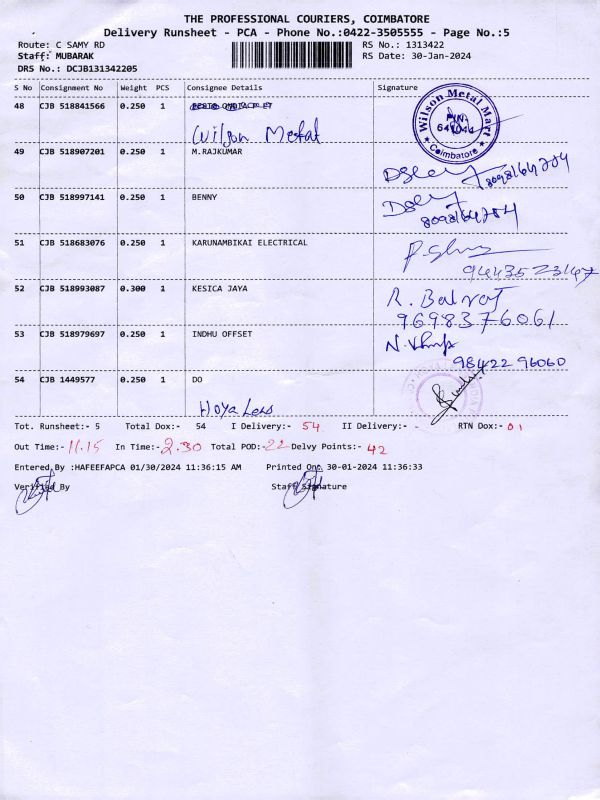 THE PROFESSIONAL COURIERS, COIMBATORE
Delivery Runsheet - PCA - Phone No.:0422-3505555 - Page No.:5
Route: C SAMY RD RS No.: 1313422
Staff: MUBARAK RS Date: 30-Jan-2024
DRS No.: DCJB131342205
S No Consignment No Weight PCS Consignee Details Signature
48 CJB 518841566 0.250 1
Wilson Metal
Wilson Metal Mart
Coimbatore
49 CJB 518907201 0.250 1 M.RAJKUMAR
8098164784
50 CJB 518997141 0.250 1 BENNY
8098164784
51 CJB 518683076 0.250 1 KARUNAMBIKAI ELECTRICAL
9443523147
52 CJB 518993087 0.300 1 KESICA JAYA R. Balraj
9698376061
53 CJB 518979697 0.250 1 INDHU OFFSET
98422 96060
54 CJB 1449577 0.250 1 DO
Hoya Lens
Tot. Runsheet:- 5 Total Dox:- 54 I Delivery:- 54 II Delivery:- - RTN Dox:- 01
Out Time:- 11.15 In Time:- 2.30 Total POD:- 22 Delvy Points:- 42
Entered By :HAFEEFAPCA 01/30/2024 11:36:15 AM Printed On: 30-01-2024 11:36:33
Verified By Staff Signature